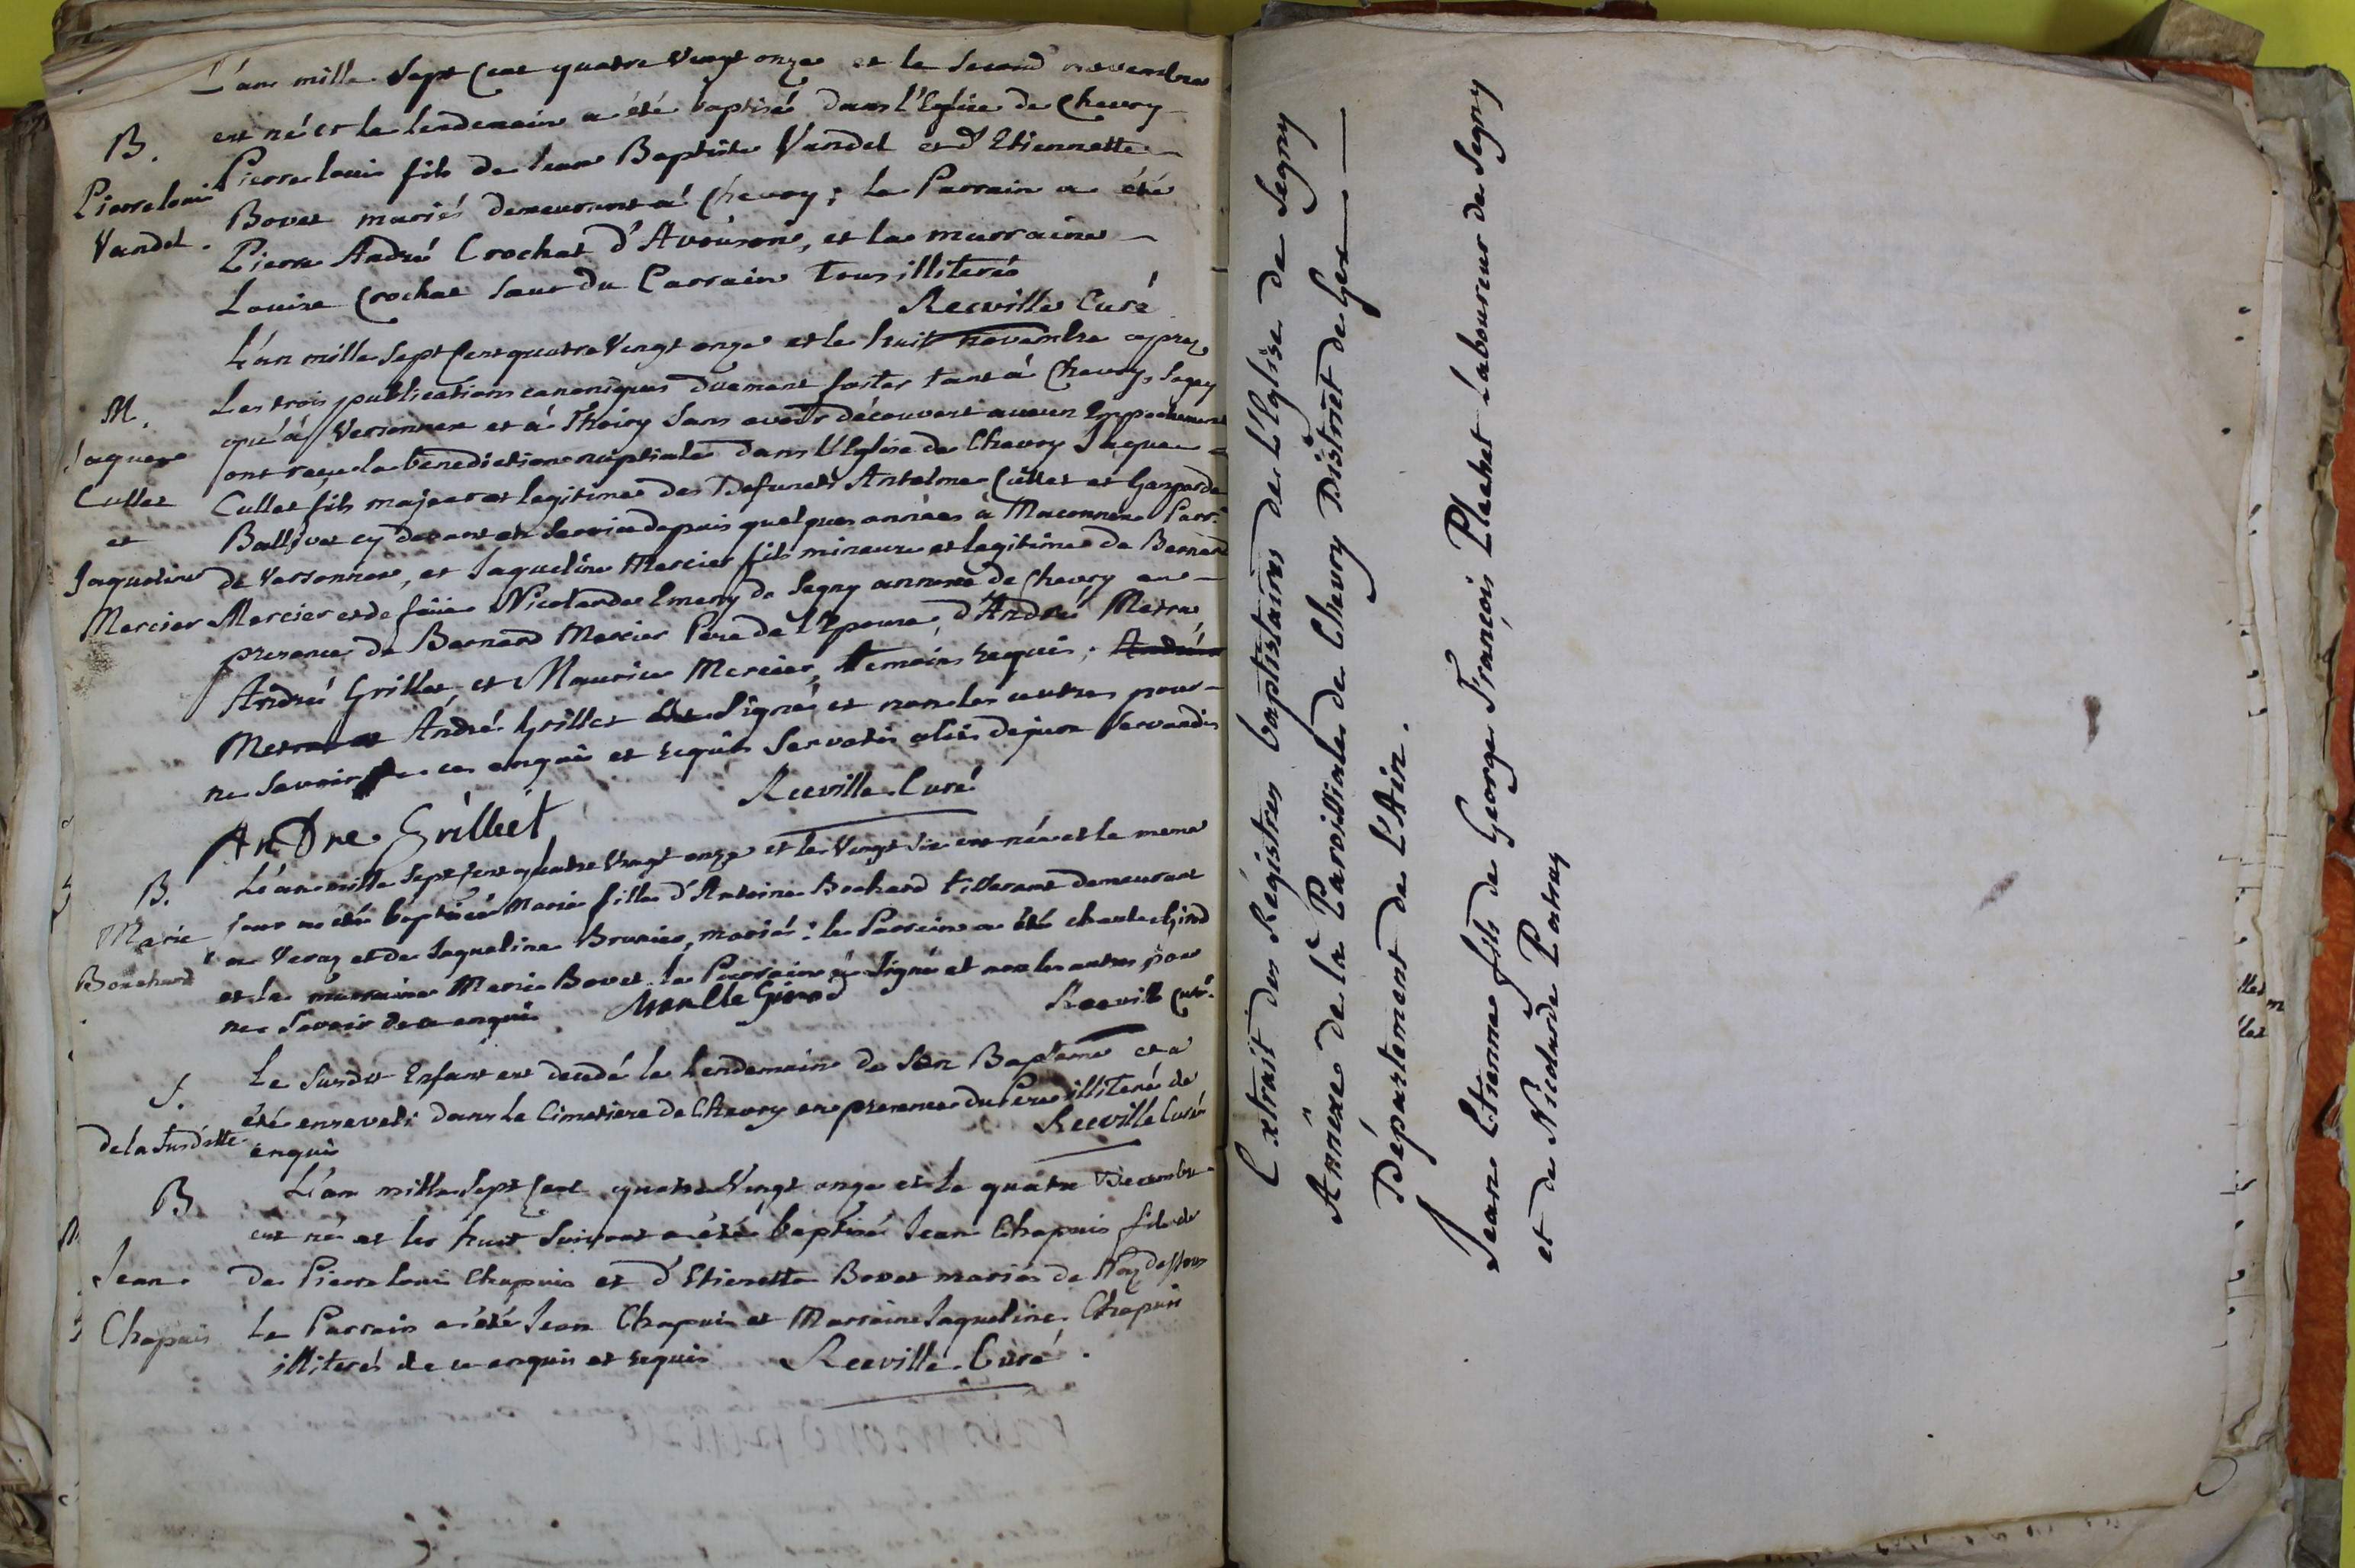 L'an mille Sept Cent quatre Vingt onze et le Second novembre
B. est né et le lendemain a été baptisé dans l'Eglise de Chevry
Pierre louis Pierre louis fils de Jean Baptiste Vandel et d'Etiennette
Vandel. Bovet mariés demeurant á Chevry ; le Parrain a été
Pierre André Crochat d'Avouson, et la marraine
Louise Crochat Sœur du Parrain tous illiterés
Reeville Curé
L'an mille Sept Cent quatre Vingt onze et le huit novembre apres
M. Les trois publications canoniques duement faites tant á Chevry, Segny
qu'á Versonnex et á Thoiry Sans avoir découvert aucun Empechement
Jaques ont reçu la benediction nuptiale dans l'Eglise de Chevry Jaques
Cullet Cullet fils majeur et legitime des Defunets Antelme Cullet et Gasparde
et Ballivet cy devant en Service depuis quelques années à Maconnex Parr.
Jaqueline de Versonnex, et Jaqueline Mercier fille mineure et legitime de Bernard
Mercier Mercier et de feüe Nicolarde Emery de Segny annexe de Chevry en
presence de Bernard Mercier Pere de l'Epouse, d'André Metra,
André Grillet, et Maurice Mercier, temoins requis, André
Metra et André Grillet Signé et non les autres pour
ne Savoir de ce enquis et requis Servatis aliis de jure Servandis
Reeville Curé
AnDre Grilliet
B. L'an mille Sept Cent quatre Vingt onze et le Vingt Six est née et le meme
Marie jour a été baptisée Marie fille d'Antoine Bochard tisserant demeurant
Bouchard a Veraz et de Jaqueline Brunier, mariés : le Parrain a été charle Girod
et la marraine Marie Bovet le Parrain á Signé et non les autres pour
ne Savoir de ce enquis Charlle Girod Reeville Curé.
S. Le Susdit Enfant est decedé le lendemain de Son Bapteme et a
été enseveli dans le Cimetiere de Chevry en presence du Pere illiteré de
de la Susditte enquis Reeville Curé
B L'an mille Sept Cent quatre Vingt onze et le quatre Decembre
est né et le huit Suivant a été baptisé Jean Chapuis fils de
Jean de Pierre Louis Chapuis et d'Etienette Bovet mariés de Naz dessous
Chapuis Le Parrain a été Jean Chapuis et Marraine Jaqueline Chapuis
illiterés de ce enquis et requis Reeville Curé.
Extrait des Régistres baptistaires de L'Eglise de Segny
Annêxe de la Paroissiale de Chevry District de Gex
Département de L'Ain.
Jean Etienne fils de George François Plachet Laboureur de Segny
et de Nicolarde Portay